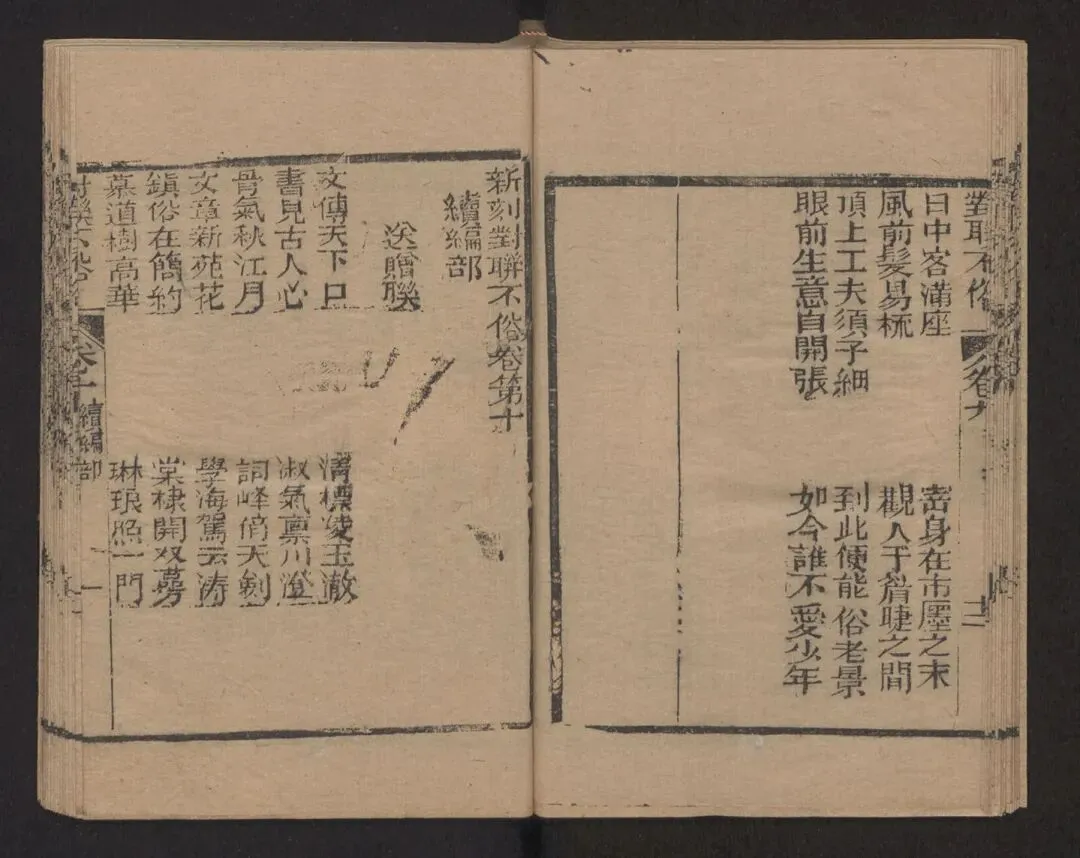 對聯不俗
卷九
十二
日中客滿座
寄身在市廛之末
風前髮易梳
觀人于眉睫之間
頂上工夫須子細
到此便能俗老景
眼前生意自開張
如今誰不愛少年
新刻對聯不俗卷第十
續編部
送贈聯
文傳天下口
清標凌玉澈
書見古人心
淑氣稟川澄
骨氣秋江月
詞峰倚天劍
文章新苑花
學海駕云濤
鎮俗在簡約
棠棣開双萼
慕道樹高華
琳琅照一門
對聯不俗
卷十
續編部
一